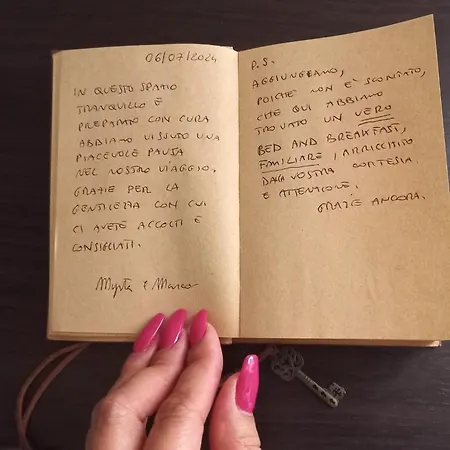 06/07/2024
IN QUESTO SPAZIO
TRANQUILLO E
PREPARATO CON CURA
ABBIAMO VISSUTO UNA
PIACEVOLE PAUSA
NEL NOSTRO VIAGGIO.
GRAZIE PER LA
GENTILEZZA CON CUI
CI AVETE ACCOLTI E
CONSIGLIATI.
Myrta e Marco
P.S.
AGGIUNGIAMO,
POICHÈ NON E' SCONTATO,
CHE QUI ABBIAMO
TROVATO UN VERO
BED AND BREAKFAST,
FAMILIARE, ARRICCHITO
DALLA VOSTRA CORTESIA
E ATTENZIONE.
GRAZIE ANCORA.